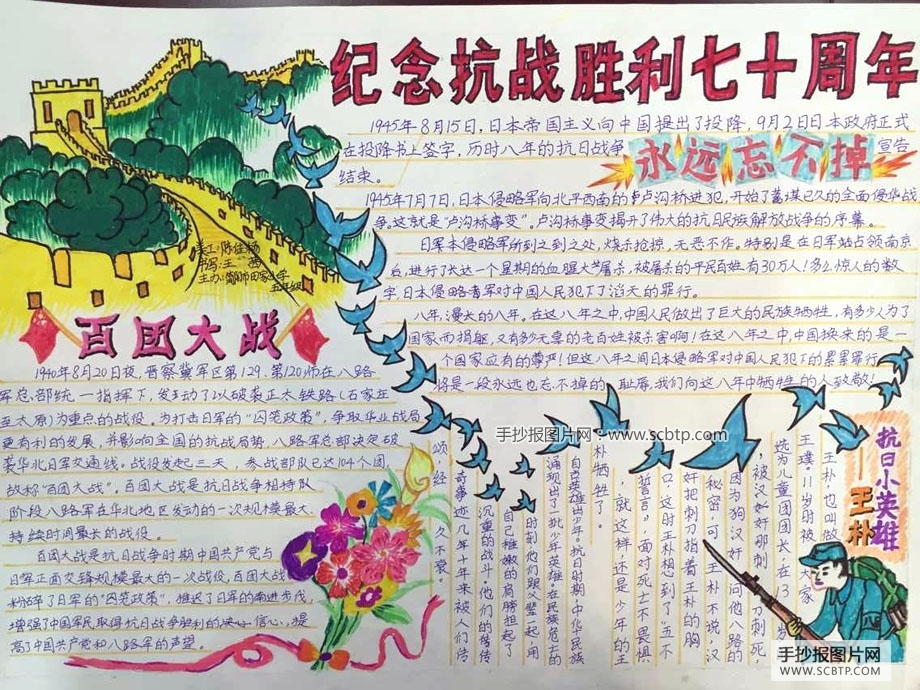 纪念抗战胜利七十周年
1945年8月15日,日本帝国主义向中国提出了投降,9月2日日本政府正式
在投降书上签字,历时八年的抗日战争
宣告
结束。
永远忘不掉
1945年7月7日,日本侵略军向北平西南的卢沟桥进犯,开始了蓄谋已久的全面侵华战
争。这就是“卢沟桥事变”。卢沟桥事变揭开了伟大的抗日民族解放战争的序幕。
日军本侵略军所到之到之处,烧杀抢掠,无恶不作。特别是在日军占领南京
后,进行了长达一个星期的血腥大屠杀,被屠杀的平民百姓有30万人!多么惊人的数
字,日本侵略者军对中国人民犯下了滔天的罪行。
八年,漫长的八年。在这八年之中,中国人民做出了巨大的民族牺牲,有多少人为了
国家而捐躯,又有多少无辜的老百姓被杀害啊!在这八年之中,中国换来的是一
个国家应有的尊严!但这八年之间日本侵略军对中国人民犯下的累累罪行
将是一段永远也忘不掉的耻辱,我们向这八年中牺牲的人致敬!
美工:陈佳杨
书写:王茜
主办:简阳市田家小学
五年级
百团大战
1940年8月20日夜,晋察冀军区第129、第120师在八路
军总部统一指挥下,发动了以破袭正太铁路(石家庄
至太原)为重点的战役。为打击日军的“囚笼政策”,争取华业战局
更有利的发展,并影响全国的抗战局势,八路军总部决定破
袭华北日军交通线。战役发起三天,参战部队已达104个团
故称“百团大战”。百团大战是抗日战争相持队
阶段八路军在华北地区发动的一次规模最大、
持续时间最长的战役。
百团大战是抗日战争时期中国共产党与
日军正面交锋规模最大的一次战役,百团大战
粉碎了日军的“囚笼政策”,推迟了日军的南进步伐,
增强了中国军民取得抗日战争胜利的决心信心,提
高了中国共产党和八路军的声望。
抗日小英雄
——王朴
王朴,也叫做
王璞。11岁时被大家
选为儿童团团长,在13岁
,被汉奸奸那刺刀刺死,
因为狗汉奸问他八路的
秘密,可王朴不说,汉
奸把刺刀指着王朴的胸
口,这时王朴想到了“五不
誓言”,面对死亡不畏惧
,就这样还是少年的王
朴牺牲了。
自古英雄出少年。抗日时期,中华民族
涌现出了一批少年英雄,在民族危亡的
时刻,他们跟父辈一起,用
自己稚嫩的肩膀担起了
沉重的战斗。他们的英雄
奇事迹几年年来被人们传
颂,经久不衰
手抄报图片网:www.scbtp.com
手抄报图片网
WWW.SCBTP.COM